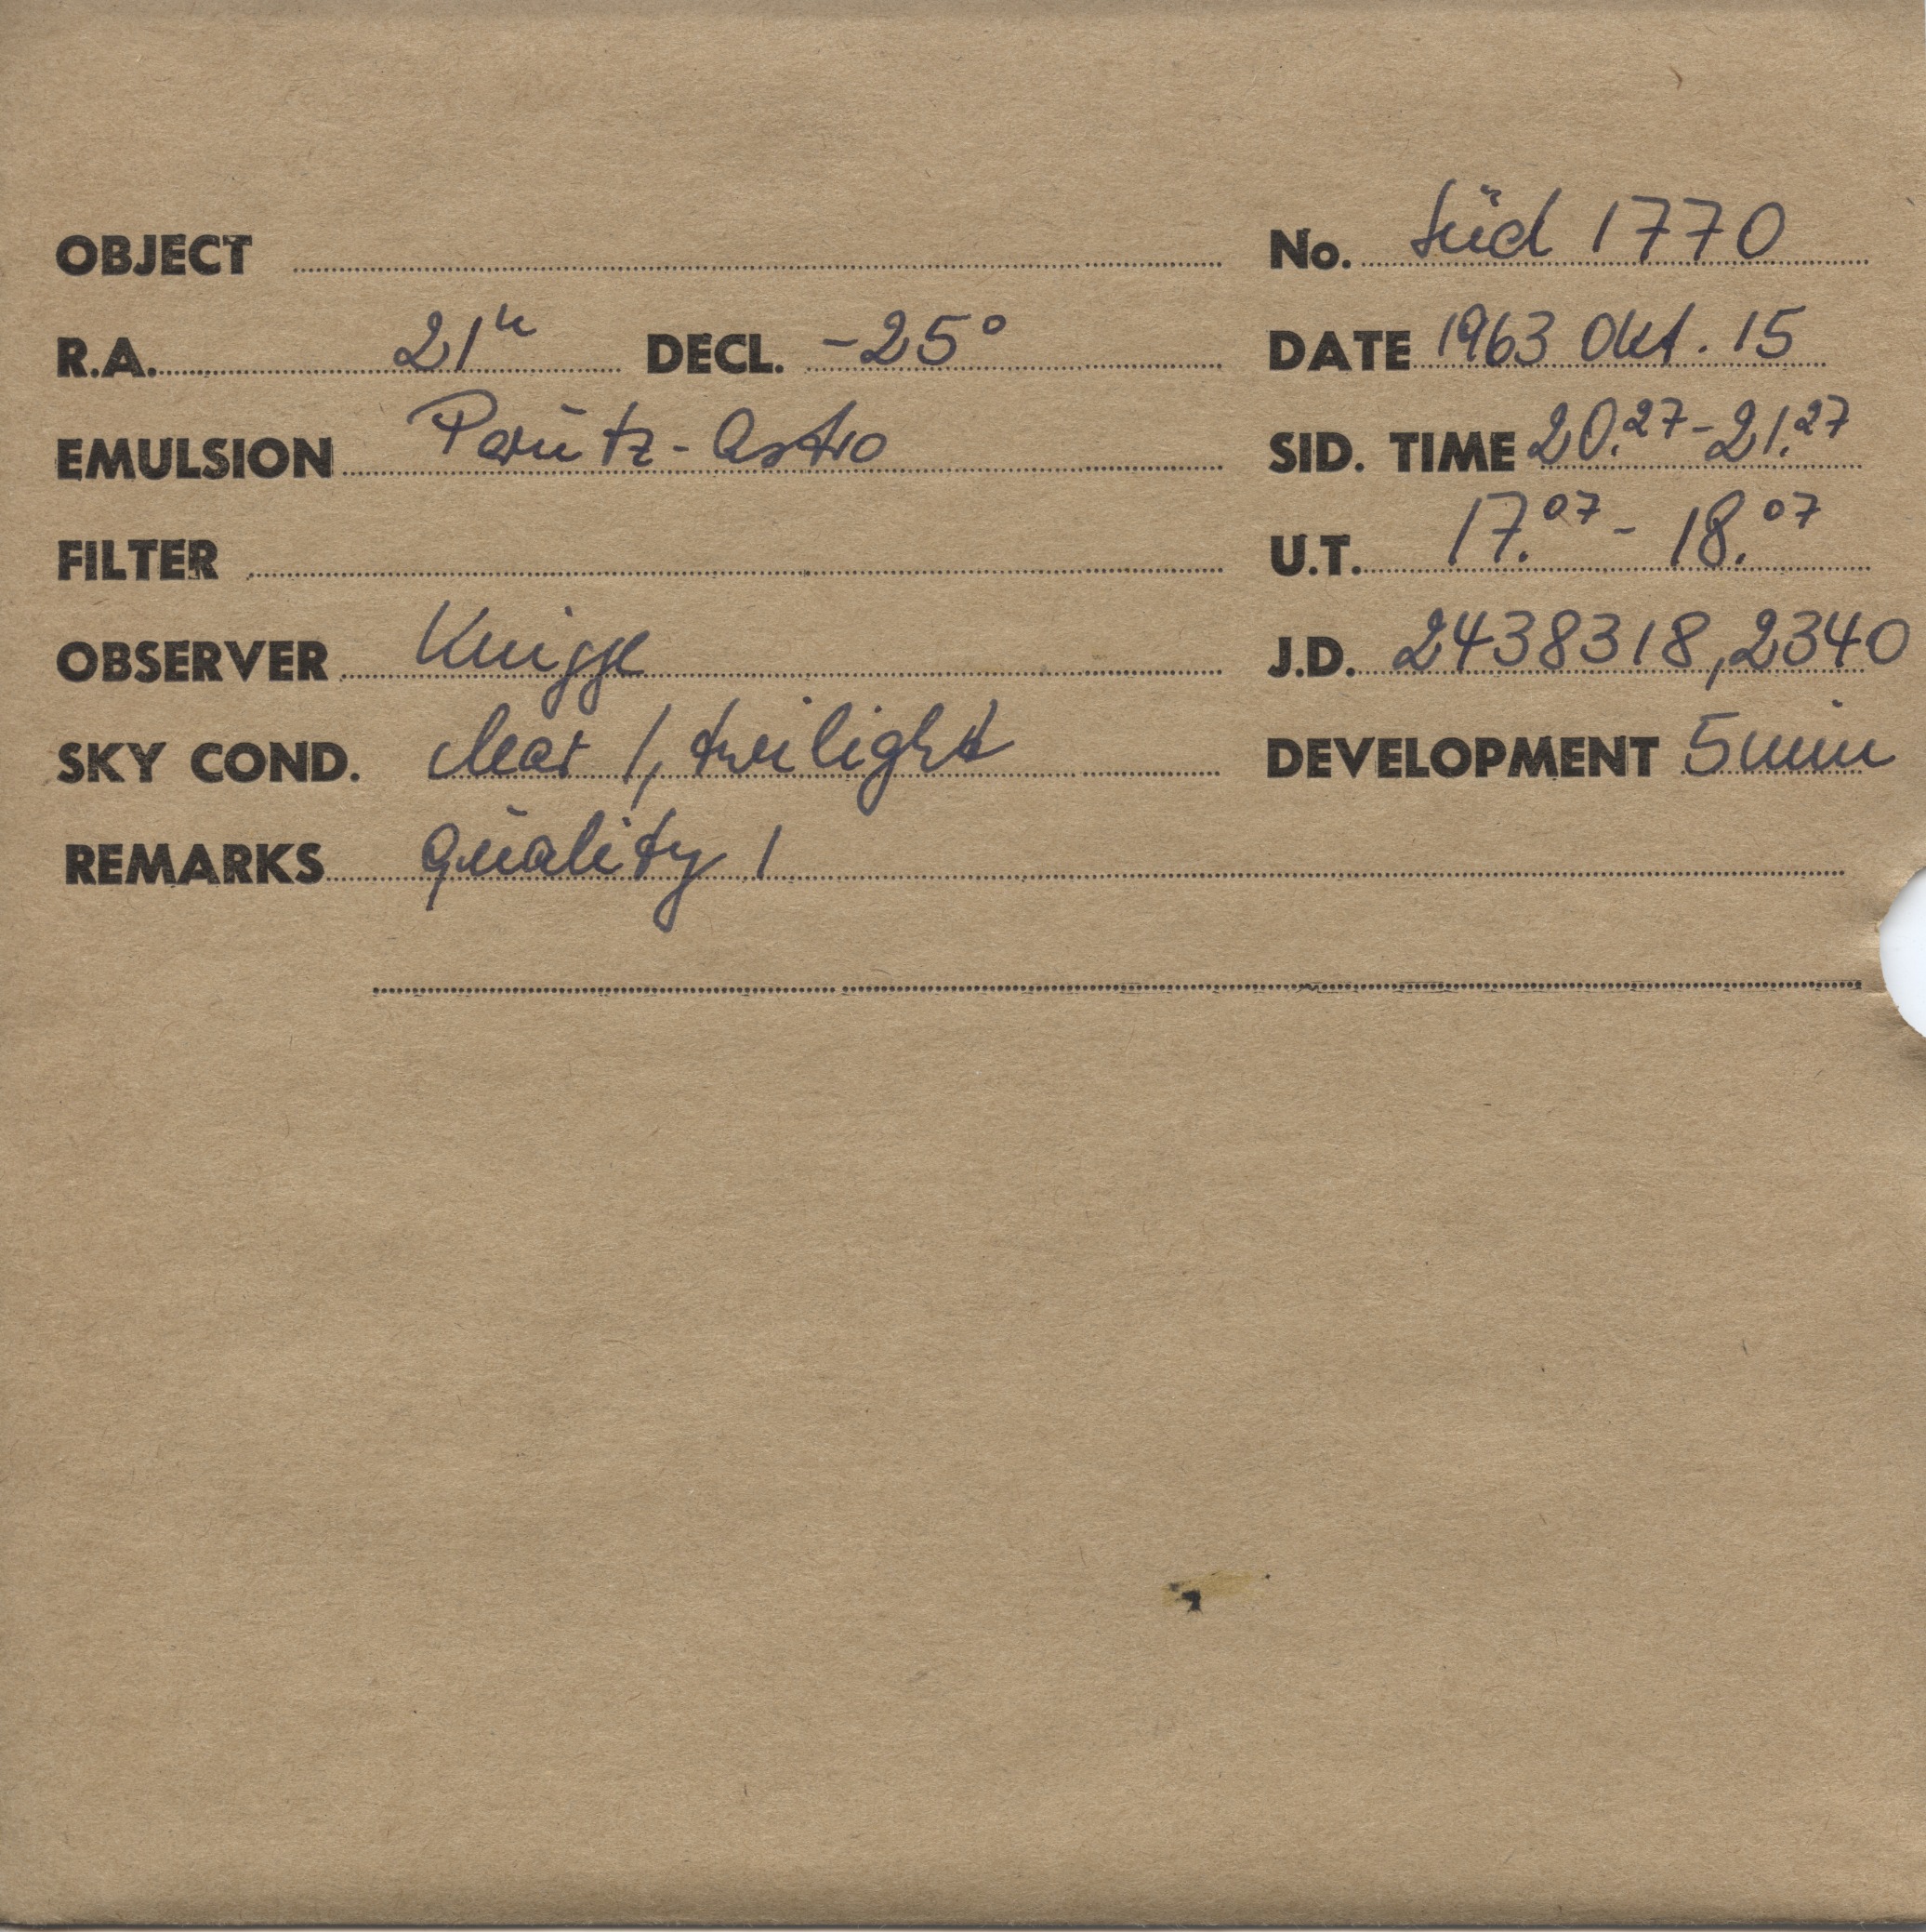 OBJECT No. Süd 1770
R.A. 21h DECL. -25° DATE 1963 Okt. 15
EMULSION Perutz-Astro SID. TIME 20.27-21.27
FILTER U.T. 17.07 - 18.07
OBSERVER Knigge J.D. 2438318,2340
SKY COND. clear 1, twilight DEVELOPMENT 5 min
REMARKS quality 1